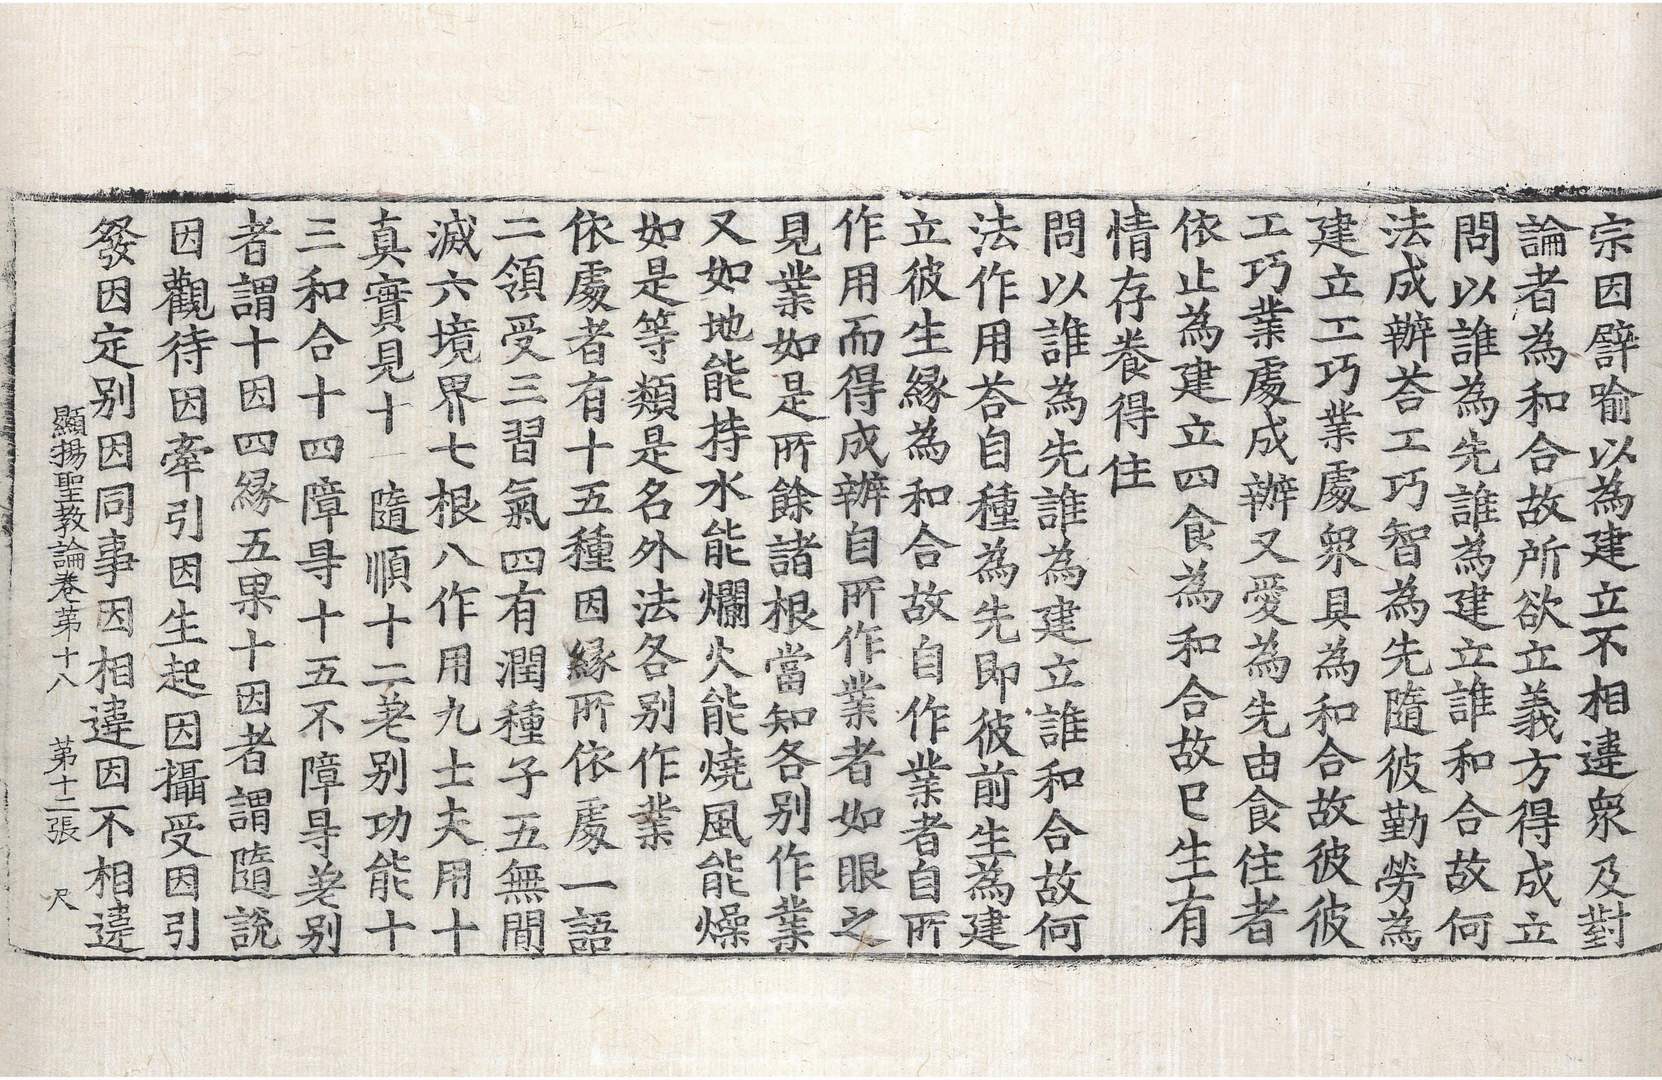 宗因譬喻以為建立不相違衆及對
論者為和合故所欲立義方得成立
問以誰為先誰為建立誰和合故何
法成辦荅工巧智為先隨彼勤勞為
建立工巧業處衆具為和合故彼彼
工巧業處成辦又愛為先由食住者
依止為建立四食為和合故已生有
情存養得住
問以誰為先誰為建立誰和合故何
法作用荅自種為先即彼前生為建
立彼生緣為和合故自作業者自所
作用而得成辦自所作業者如眼之
見業如是所餘諸根當知各別作業
又如地能持水能爛火能燒風能燥
如是等類是名外法各別作業
依處者有十五種因緣所依處一語
二領受三習氣四有潤種子五無間
滅六境界七根八作用九士夫用十
真實見十一隨順十二差別功能十
三和合十四障导十五不障导差別
者謂十因四緣五果十因者謂隨說
因觀待因牽引因生起因攝受因引
發因定別因同事因相違因不相違
顯揚聖教論卷第十八 第十二張 尺